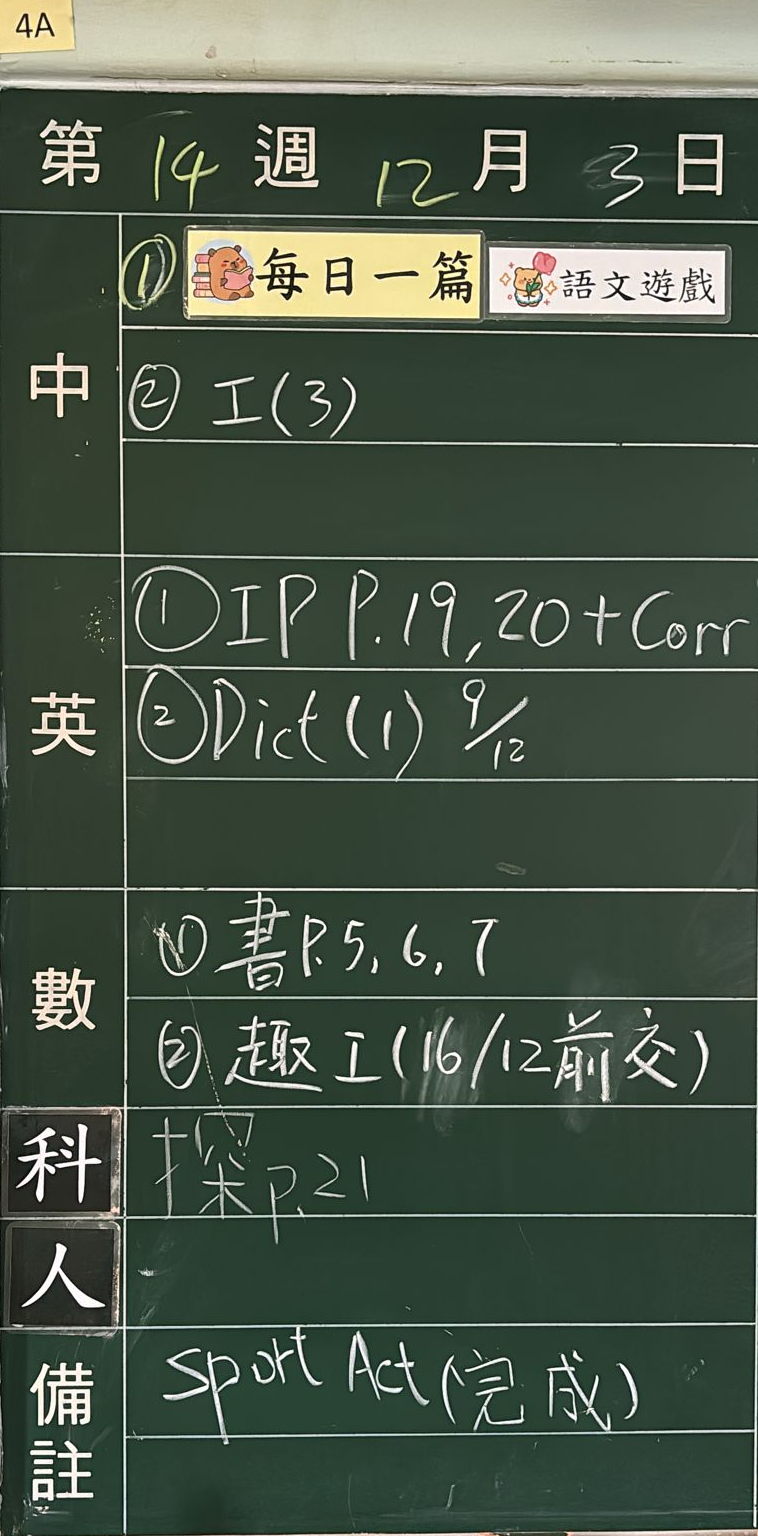 4A
第 14 週 12 月 3 日
中
① 每日一篇 語文遊戲
② 工(3)
英
① IP P.19, 20 + Corr
② Dict (1) 9/12
數
① 書P.5, 6, 7
② 趣工(16/12前交)
科
探P.21
人
備註
Sport Act (完成)